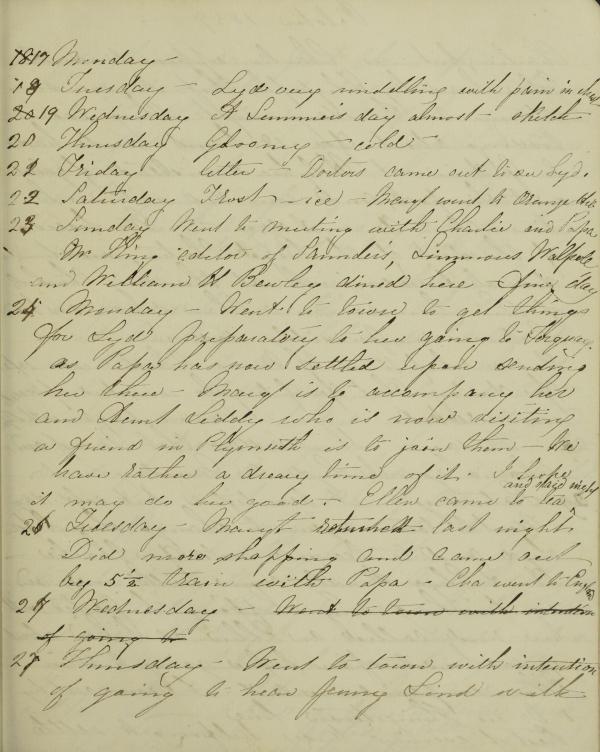 1817 Monday -
18 Tuesday - Lyd very middling with pain in chest
19 Wednesday A Summers day almost - sketch
20 Thursday Gloomy - cold -
21 Friday better - Doctors came out to see Lyd.
22 Saturday Frost - ice - Margt went to Orange
23 Sunday Went to meeting with Charlie and Papa
Mr King editor of Saunders, Simmons Walpole
and William H Bewley dined here - fine day
24 Monday - Went to town to get things
for Lyd preparatory to her going to Torquay.
as Papa has now settled upon sending
her there - Margt is to accompany her
and Aunt Liddy who is now visiting
a friend in Plymouth is to join them - We
have rather a dreary time of it. I hope
it may do her good. - Ellen came to tea and staid night
25 Tuesday - Margt returned last night
Did more shopping and came out
by 5½ train with Papa - Cha went to Engd
27 Wednesday - Went to town with intention
of going to
27 Thursday - Went to town with intention
of going to hear Jenny Lind with